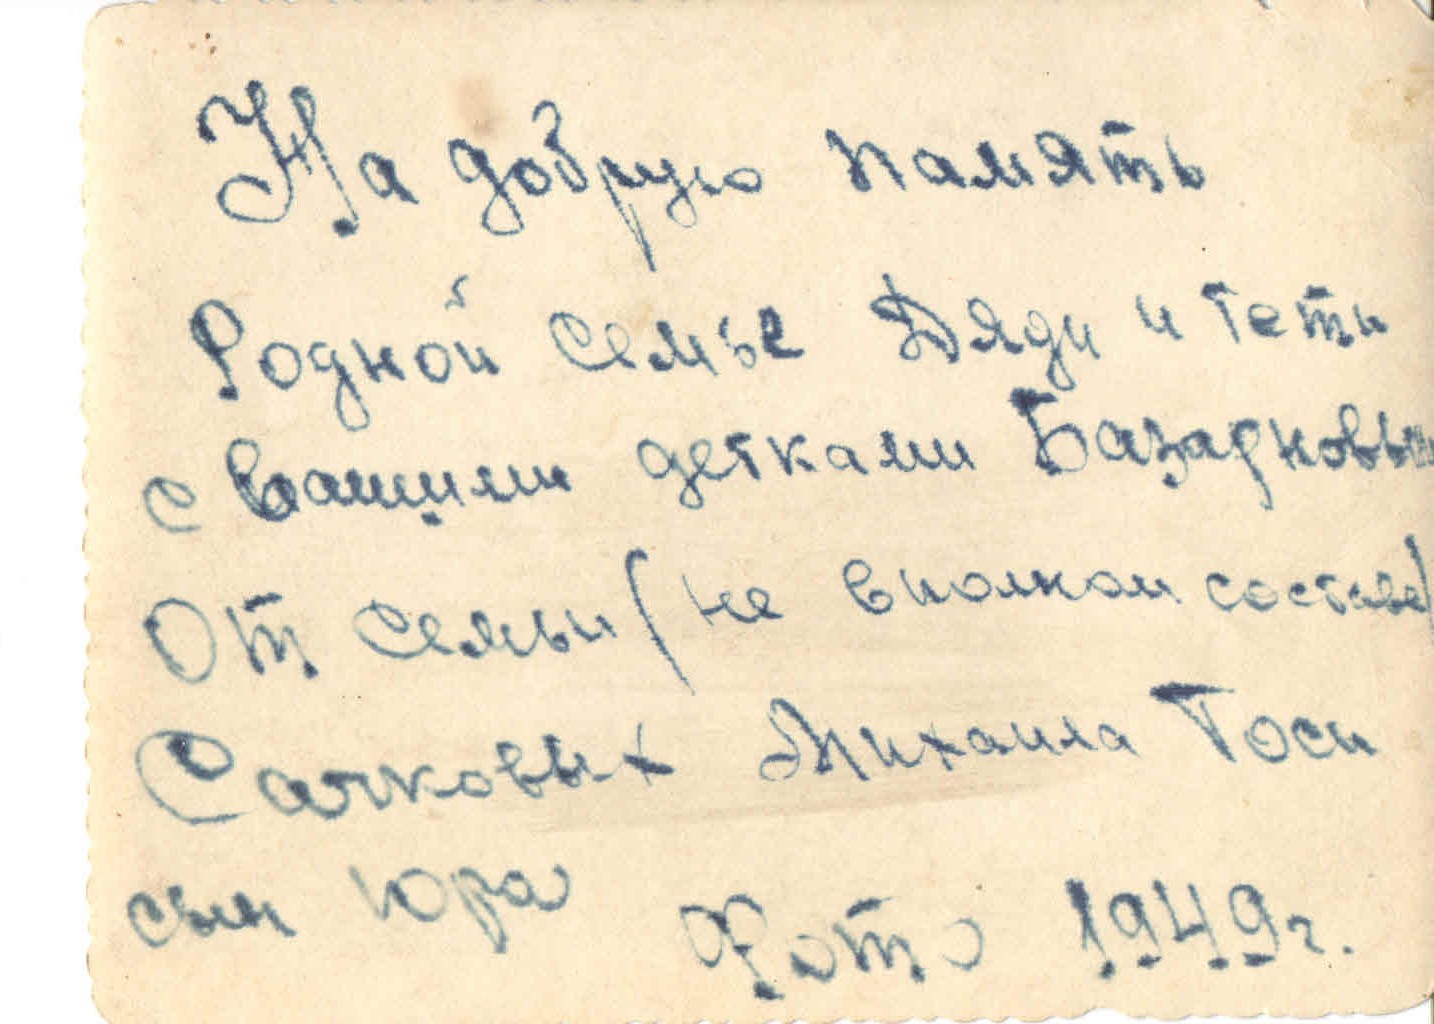 На добрую память
Родной семье Дяди и тети
с Вашими детками
От семьи (не вполном составе)
Сачковых Михаила Тоси
сын Юра Фото 1949 г.